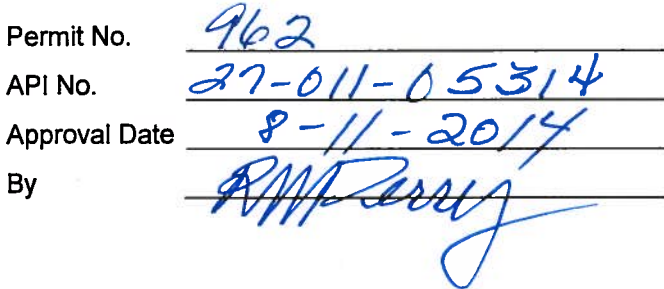 Permit No. 962
API No. 27-011-05314
Approval Date 8-11-2014
By RMPerry